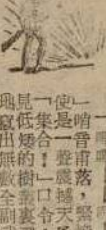 一哨音甫落，緊
使是一聲震撼天
「集合！」口令
見低矮的樹叢裏
地竄出無數全副